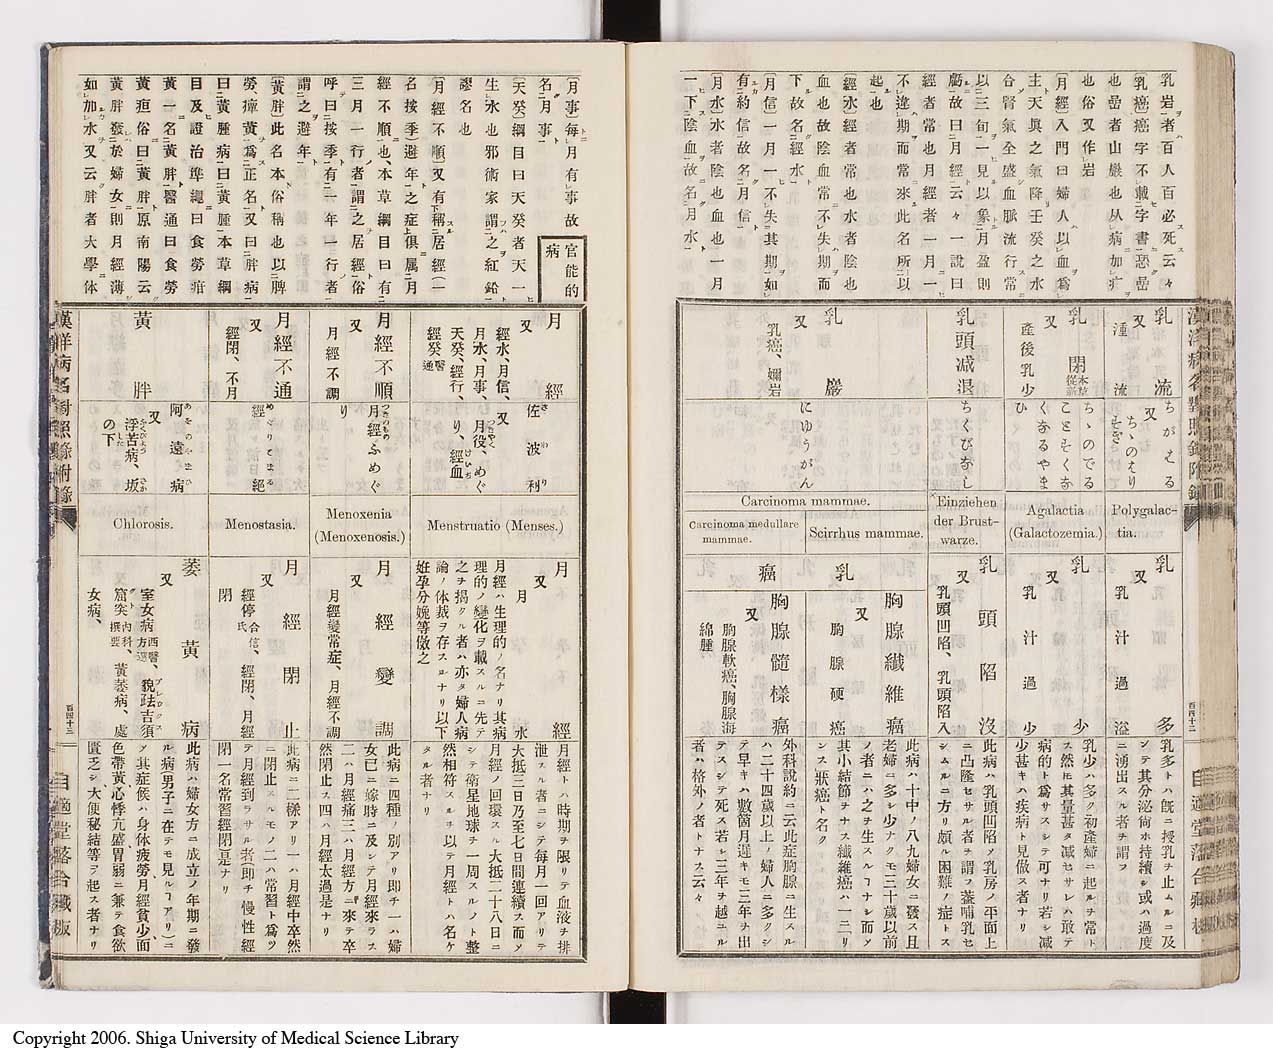 乳岩者百人百必死云々
乳癌癌字不載字書惡嵒
也嵒者山巖也从病加疒
也俗又作岩
月經入門曰婦人以血爲
主天眞之氣降壬癸之水
合腎氣全盛血脈流行常
以三旬一見以象月盈則
虧故曰月經云々一說曰
經者常也月經者一月一
不違期而常來此名所以
起也
經水經者常也水者陰也
血也故陰血常不失期而
下故名經水
月信一月一不失其期如
有約信故名月信
月水水者陰也血也一月
一下陰血故名月水
乳流
又
湩流
ちがえる
又
ちゝのえり
Polygalac-
tia.
乳多
又
乳汁過溢
乳多トハ既ニ授乳ヲ止ムルニ及
シテ其分泌尚ホ持續シ或ハ過度
ニ湧出スル者ヲ謂フ
乳閉
又
產後乳少
ちゝのでる
ことそくな
くなるやま
ひ
Agalactia
(Galactozemia.)
乳少
又
乳汁過少
乳少ハ多ク初產婦ニ起ルヲ常ト
ス然圧其量甚タ減セサレハ敢テ
病的ト爲サスシテ可ナリ若シ減
少甚キハ疾病ト見做ス者ナリ
乳頭減退
ちくびなし
Einziehen
der Brust-
warze.
乳頭陷沒
又
乳頭凹陷、乳頭陷入
此病ハ乳頭凹陷シ乳房ノ平面上
ニ凸隆セサル者ヲ謂フ蓋哺乳セ
シムルニ方リ頗ル困難ノ症トス
乳巖
又
乳癌、嬭岩
にゆうがん
Carcinoma mammae.
Scirrhus mammae.
Carcinoma medullare
mammae.
乳癌
胸腺纖維癌
又
胸腺硬癌
此病ハ十中ノ八九婦女ニ發ス且
老婦ニ多シ少ナクモ三十歲以前
ノ者ニハ之ヲ生スルコナシ而ノ
其小結節ヲナス纖維癌ハ一ニリ
ンス狀癌ト名ク
胸腺髓樣癌
又
胸腺軟癌、胸腺海
綿腫
外科說約ニ云此症胸腺ニ生スル
ハ二十四歲以上ノ婦人ニ多クシ
テ早キハ數箇月遲キモ三年ヲ出
テスシテ死ス若シ三年ヲ越ユル
者ハ格外ノ者トナス云々
百四十二
月事每月有事故
名月事
天癸綱目曰天癸者天一
生水也邪術家謂之紅鉛
謬名也
月經不順又有稱居經(一
名按季)避年之症俱屬月
經不順也、本草綱目曰有
三月一行者謂之居經俗
呼曰按季有一年一行者
謂之避年
黃胖此名本俗稱也以脾
勞、瘴黃爲正名又曰胖病
曰黃腫病曰黃腫本草綱
目及證治準繩曰食勞疳
黃一名黃胖醫通曰食勞
黃疸俗曰黃胖原南陽云
黃胖發於婦女則月經薄
如加水又云胖者大學体
官能的
病
月經
又
經水、月信、
月水、月事、
天癸、經行、
經癸醫通
佐波利
さわり
又
月役、めぐ
り、經血
Menstruatio (Menses.)
月經
又
月水
月經ハ生理的ノ名ナリ其病
理的ノ變化ヲ載スルニ先テ
之ヲ揭クル者ハ亦タ婦人病
論ノ体裁ヲ存スルナリ以下
姙孕分娩等傚之
月經トハ時期ヲ限リテ血液ヲ排
泄スル者ニシテ每月一回アリテ
大抵三日乃至七日間連續ス而ノ
月經ノ回環スル大抵二十八日ニ
シテ衛星地球ヲ一周スルノト整
然相符スルヲ以テ月經トハ名ケ
タル者ナリ
月經不順
又
月經不調
月經ふめぐ
り
Menoxenia
(Menoxenosis.)
月經變調
又
月經變常症、月經不調
此病ニ四種ノ別アリ即チ一ハ婦
女已ニ嫁時ニ及シテ月經來ラス
二ハ月經痛三ハ月經方ニ來テ卒
然閉止ス四ハ月經太過是ナリ
月經不通
又
經閉、不月
めぐりとまる
經絕
Menostasia.
月經閉止
又
經停合信氏、經閉、月經
閉
此病ニ二樣アリ一ハ月經中卒然
ニ閉止スルモノ二ハ常習ト爲ツ
テ月經到ラサル者即チ慢性經
閉一名常習經閉是ナリ
黃胖
あをのやまひ
阿遠病
又
浮苦病、坂
の下
Chlorosis.
萎黃病
又
室女病西醫方選、貌琺吉須
窟矢內科撰要、黃萎病、處
女病、
此病ハ婦女方ニ成立ノ年期ニ發
ル病(男子ニ在テモ見ルコアリ)ニ
ノ其症候ハ身体疲勞月經貧少面
色帶黃、心悸亢盛胃弱ニ兼テ食欲
匱乏シ大便秘結等ヲ起ス者ナリ
漢洋病名對照錄附錄
百四十三
自適堂
Copyright 2006. Shiga University of Medical Science Library